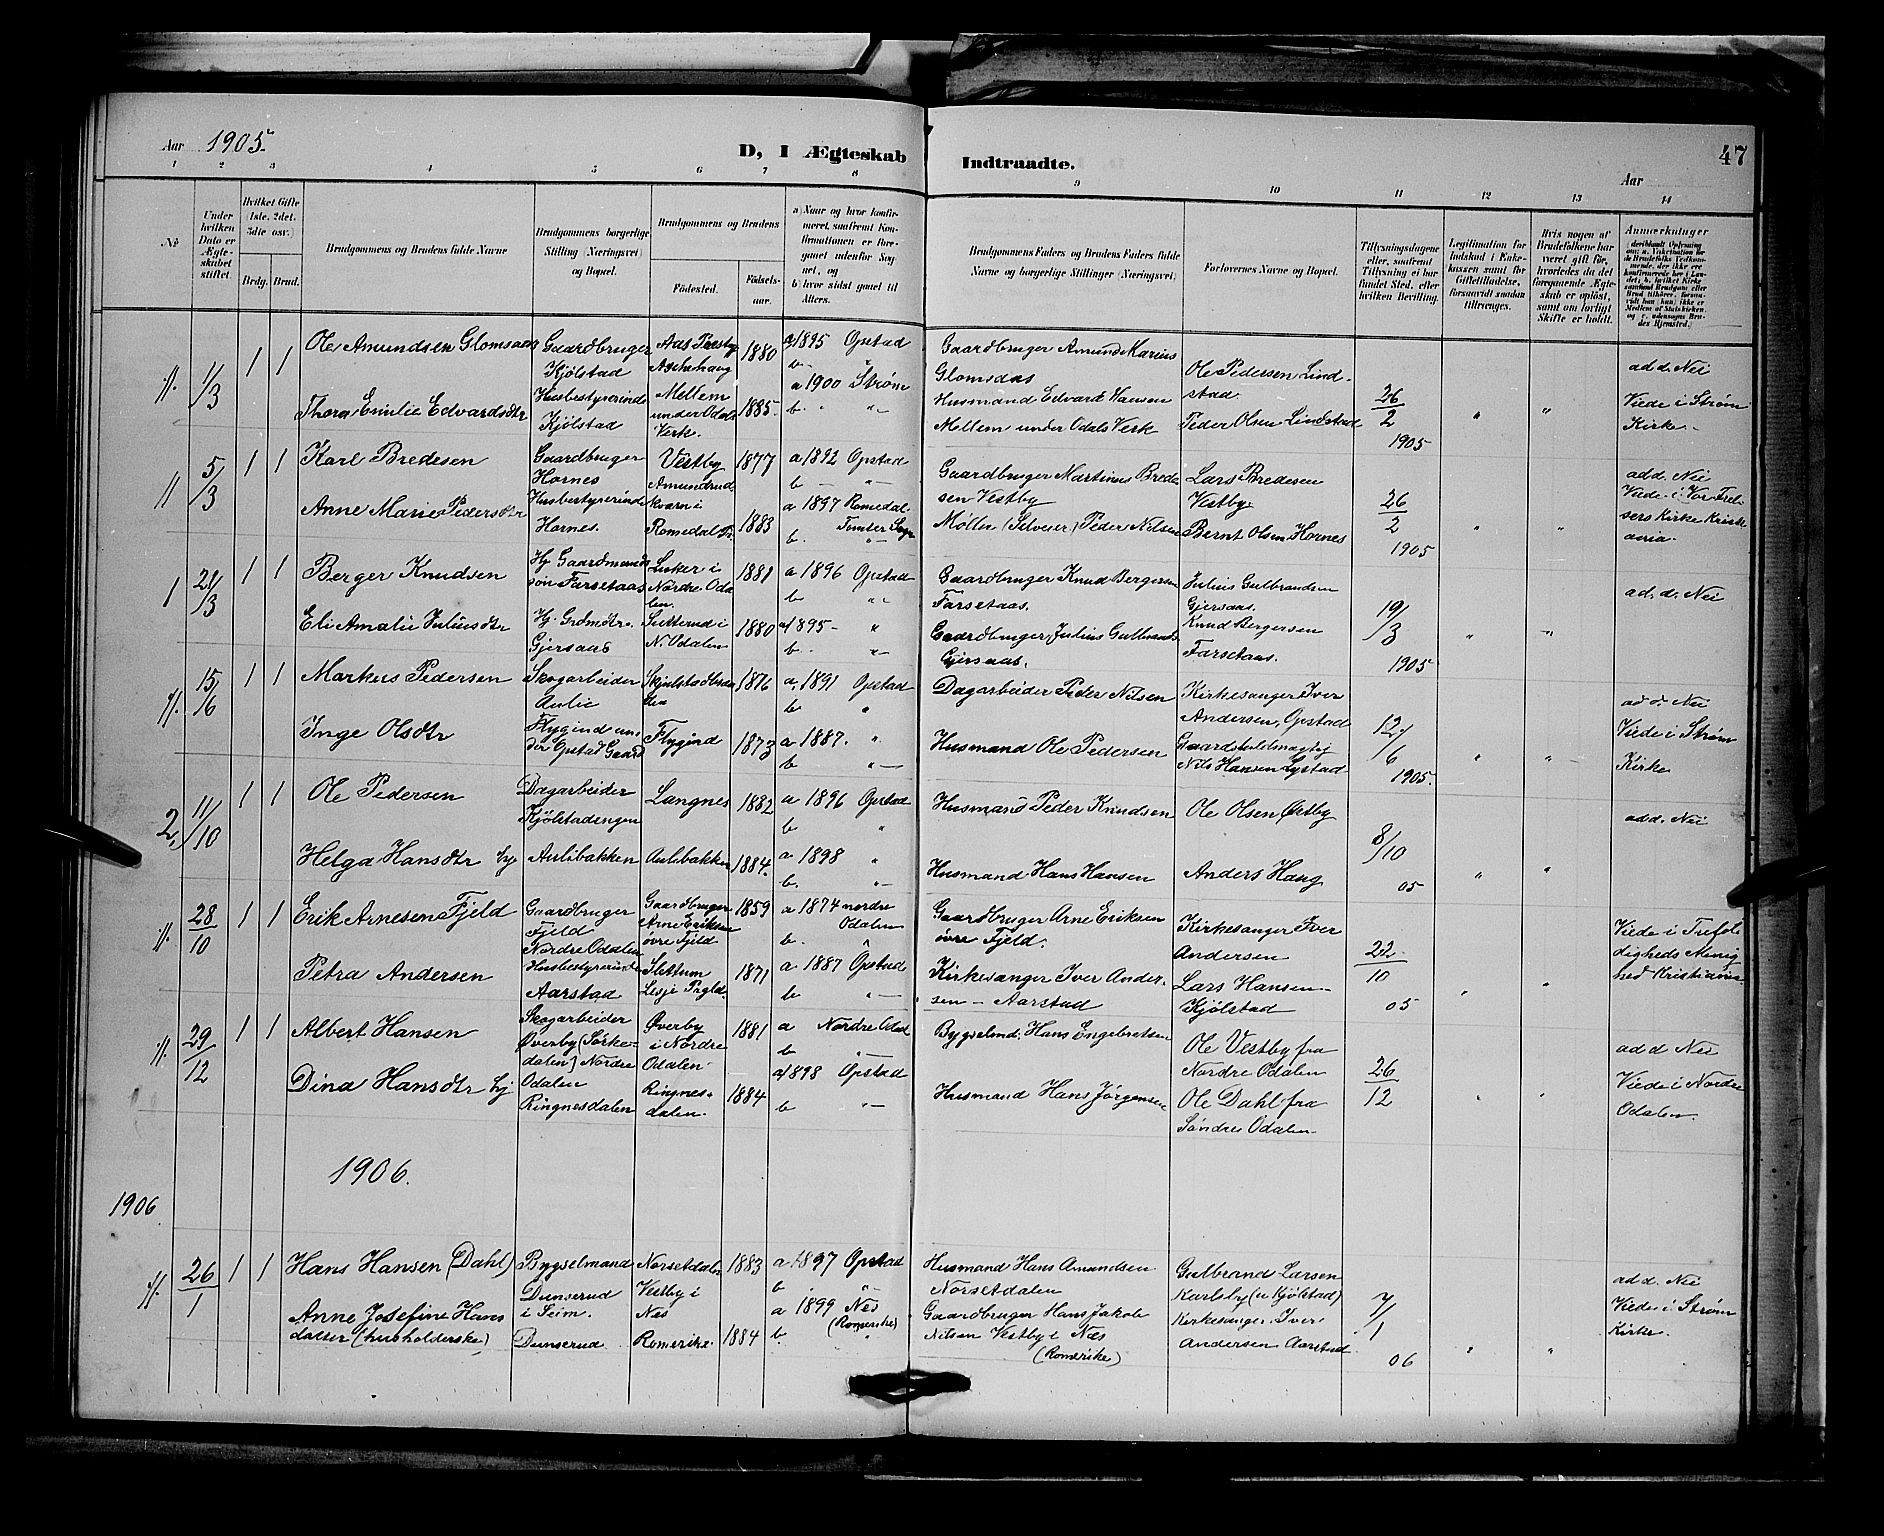 Aar 1905.
D, I Ægteskab Indtraadte.
47
Aar
1 2 3 4 5 6 7 8 9 10 11 12 13 14
No
Under hvilken Dato er Ægteskabet stiftet.
Hvilket Gifte 1ste, 2det, 3die osv.)
Brdg. Brud.
Brudgommens og Brudens fulde Navne
Brudgommens borgerlige Stilling (Næringsvei) og Bopæl.
Brudgommens og Brudens
Fødested.
Fødsels-aar.
a) Naar og hvor konfirmeret, saafremt Konfirmationen er foregaaet udenfor Sognet, og
b) hvor sidst gaaet til Alters.
Brudgommens Faders og Brudens Faders fulde Navne og borgerlige Stillinger (Næringsvei)
Forlovernes Navne og Bopæl.
Tillysningsdagene eller, saafremt Tillysning ei har fundet Sted, efter hvilken Bevilling.
Legitimation for Indskud i Enkekassen samt for Giftetilladelse, forsaavidt saadan tiltrænges.
Hvis nogen af Brudefolkene har været gift før, hvorledes da det foregaaende Ægteskab er opløst, samt om lovligt Skifte er holdt.
Anmærkninger
1/3 1 1 Ole Amundsen Glomsaas Gaardbruger Kjølstad 1880 a 1895 Opstad b — " Gaardbruger Amund Marius Glomsdas Ole Pedersen Lindstad. 26/2 1905 " " ad d. Nei Viede i Strøm Kirke.
Thora Emilie Edvardsdtr Husbestyrerinde Kjølstad Mellem under Odals Verk. 1885. a 1900 Strøm b. " " Husmand Edvard Hansen Mellem under Odals Verk Peder Olsen Lindstad
11 5/3 1 1 Karl Bredesen Gaardbruger Hornes Vestby 1877 a 1892 Opstad b — " Gaardbruger Martinus Bredesen Vestby Lars Bredesen Vestby 26/2 1905 " " ad d. Nei Viede i Vor Frelsers Kirke Kristiania.
Anne Marie Pedersdtr Husbestyrerinde Hornes. Amundrud kværn i Romedal 1883 a 1897 Romedal b. " Møller Peder Nilsen Bernt Olsen Hornes
1 21/3 1 1 Berger Knudsen Hj. Gaardmandssøn Farsetaas Nordre Odalen. 1881 a 1896 Opstad b " Gaardbruger Knud Bergersen Farsetaas. Julius Gulbrandsen Gjersaas. 19/3 1905 " " ad. d. Nei
Eli Amalie Juliusdtr Hj. Grdmdtr. Gjersaas N. Odalen 1880 a 1895 — " b. " Gaardbruger Julius Gulbrands. Gjersaas. Knud Bergersen Farsetaas.
15/6 1 1 Markus Pedersen Skogarbeider Aulie 1876 a. 1891 Opstad b " Dagarbeider Peder Nilsen Kirkesanger Iver Andersen, Opstad 12/6 1905. " " ad d. Nei Viede i Strøm Kirke
Inge Olsdtr Flygind under Opstad Gaard Flygind 1873 a 1887. " b " Husmand Ole Pedersen Nils Hansen Lystad
2, 11/10 1 1 Ole Pedersen Dagarbeider Kjølstadengen Langnes 1882 a 1896 Opstad b " Husmand Peder Knudsen Ole Olsen Østby 8/10 05 " " ad d. Nei
Helga Hansdtr hj Aulibakken Aulibakken 1884. a 1898 " b. " Husmand Hans Hansen Anders Haug
28/10 1 1 Erik Arnesen Fjeld Gaardbruger Fjeld Nordre Odalen Gaardbruger Arne Eriksen øvre Fjeld 1859 a 1874 nordre Odalen b. " Gaardbruger Arne Eriksen øvre Fjeld. Kirkesanger Iver Andersen 22/10 05 " " Viede i Trefoldigheds Menighed Kristiania
Petra Andersen Husbestyrerinde Aarstad Slettum Lesje 1871 a 1887 Opstad b " Kirkesanger Iver Andersen — Aarstad Lars Hansen Kjølstad
29/12 1 1 Albert Hansen Skogarbeider Øverby (Sørkedalen) Nordre Odalen Øverby i Nordre Odalen 1881 a Nordre Odal b " Bygselmd. Hans Engebretsen Ole Vestby fra Nordre Odalen 26/12 " " ad d Nei Viede i Nordre Odalen
Dina Hansdtr hj Ringnesdalen Ringnesdalen. 1884 a 1898 Opstad b " Husmand Hans Jørgensen Ole Dahl fra Søndre Odalen
1906.
1906.
26/1 1 1 Hans Hansen (Dahl) Bygselmand Dunserud i Seim. Norsetdalen 1883 a 1897 Opstad b " Husmand Hans Amundsen Norsetdalen Gulbrand Larsen Karlsby (u Kjølstad) 7/1 06 " " ad d. Nei Viede i Strøm Kirke.
Anne Josefine Hansdatter (husholderske) Dunserud Vestby i Nes Romerike. 1884 a 1899 Nes (Romerike) b. " Gaardbruger Hans Jakob Nilsen Vestby i Næs (Romerike) Kirkesanger Iver Andersen Aarstad